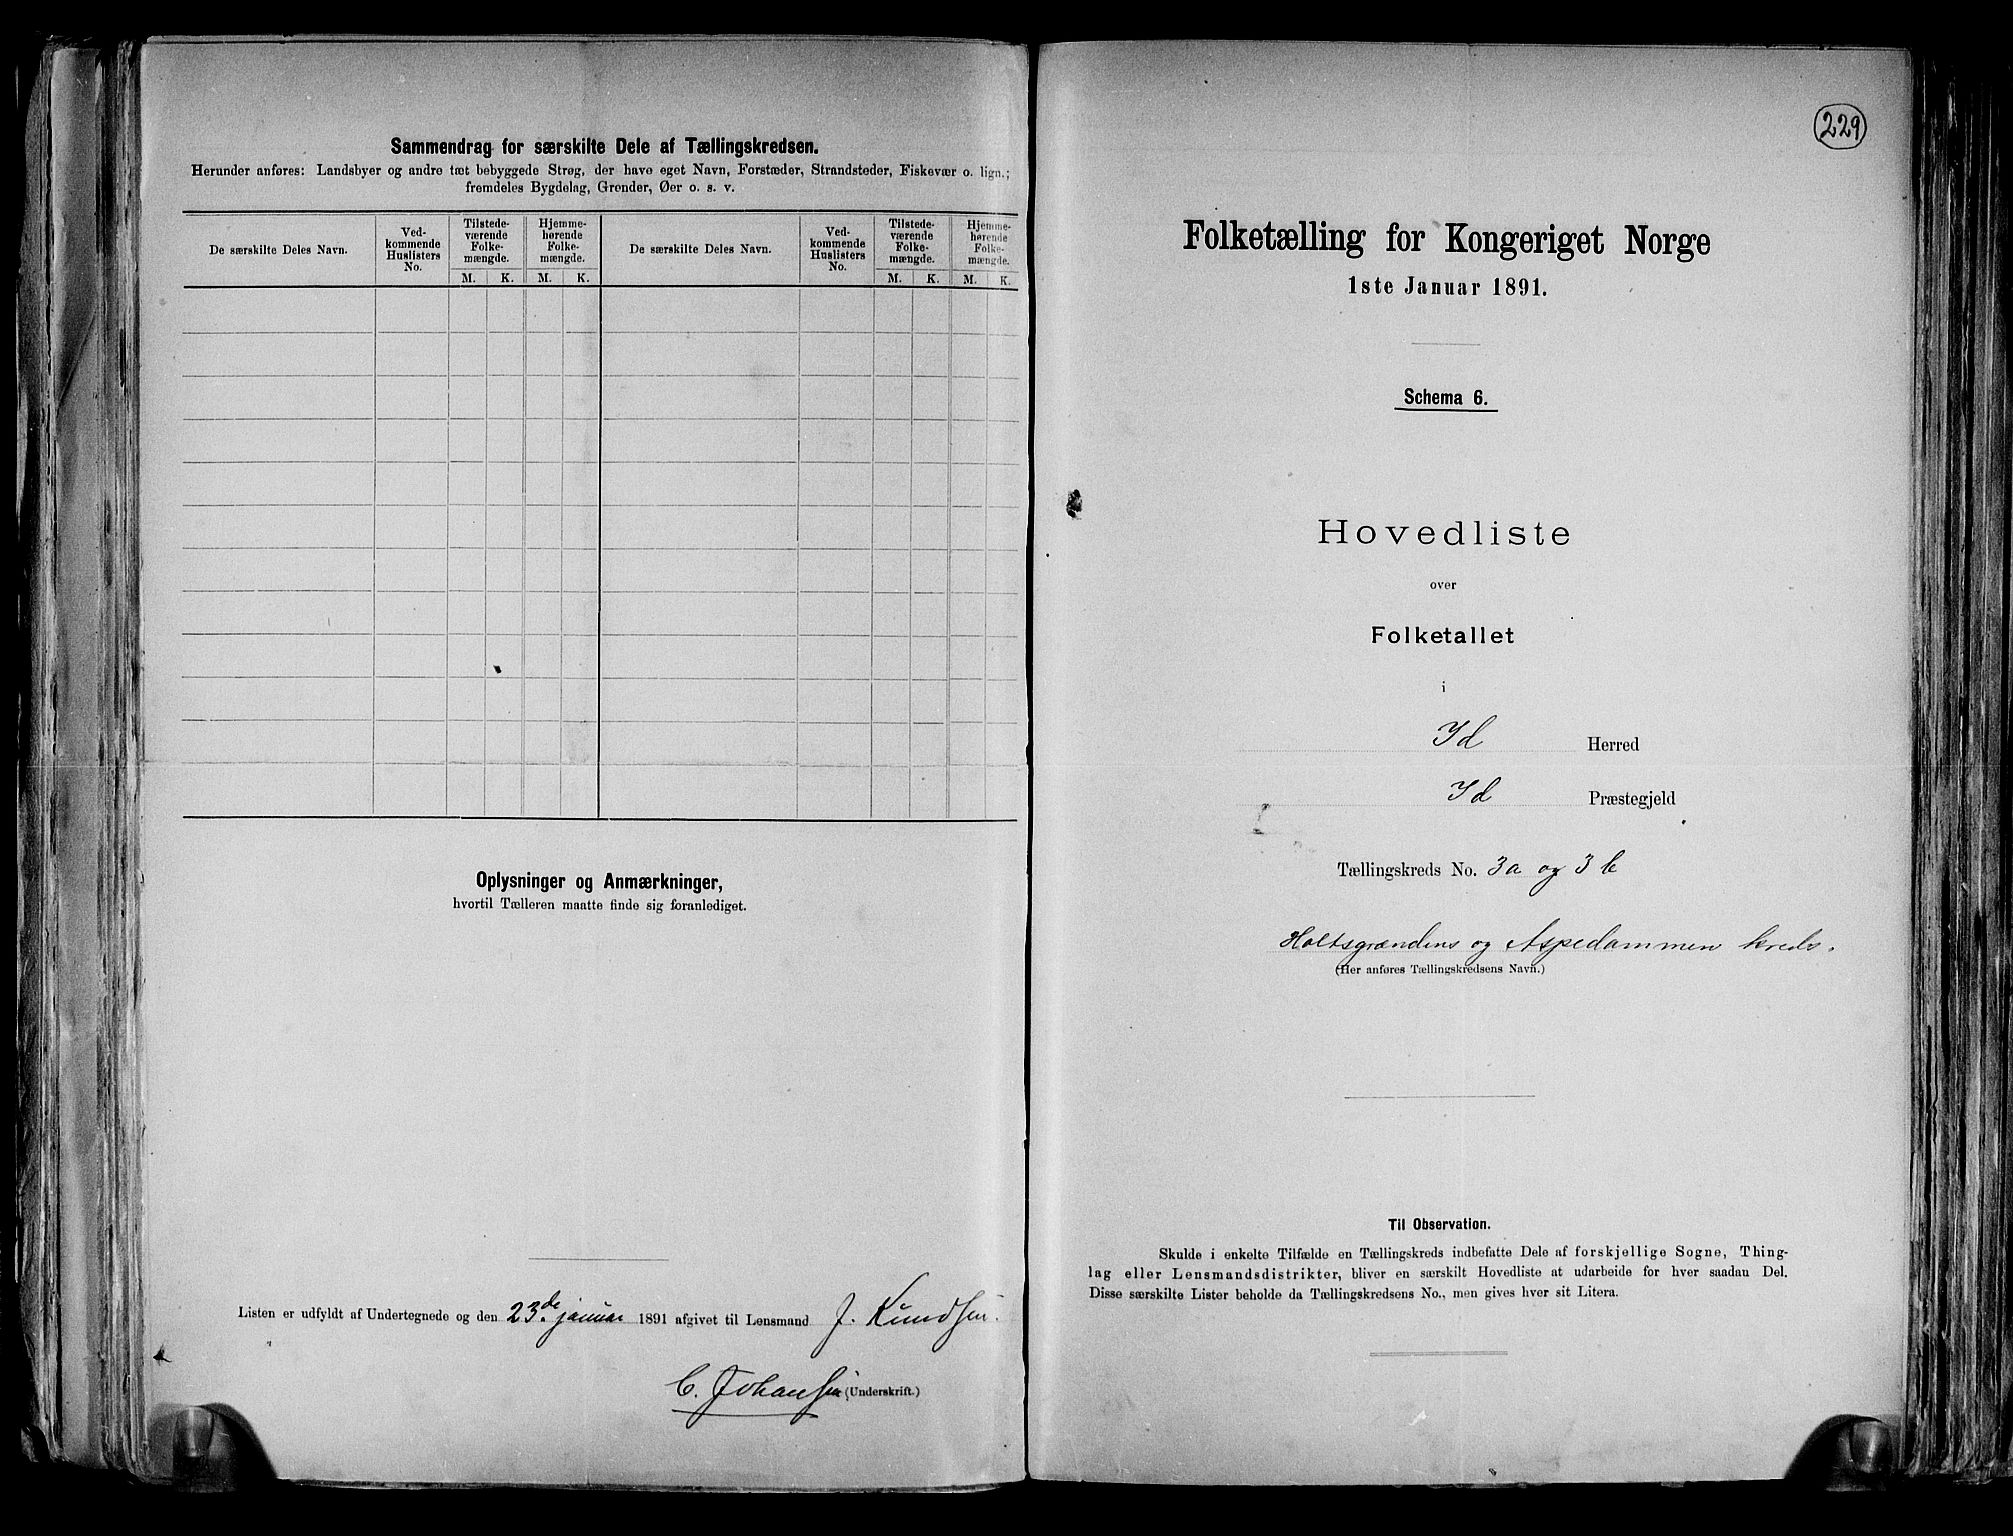 Sammendrag for særskilte Dele af Tællingskredsen.
Herunder anføres: Landsbyer og andre tæt bebyggede Strøg, der have eget Navn, Forstæder, Strandsteder, Fiskevær o. lign.;
fremdeles Bygdelag, Grender, Øer o. s. v.
De særskilte Deles Navn.
Ved-
kommende
Huslisters
No.
Tilstede-
værende
Folke-
mængde.
Hjemme-
hørende
Folke-
mængde.
M. K. M. K.
De særskilte Deles Navn.
Ved-
kommende
Huslisters
No.
Tilstede-
værende
Folke-
mængde.
Hjemme-
hørende
Folke-
mængde.
M. K. M. K.
Oplysninger og Anmærkninger,
hvortil Tælleren maatte finde sig foranlediget.
Listen er udfyldt af Undertegnede og den 23de januar 1891 afgivet til Lensmand J. Knudsen.
C. Johansen (Underskrift.)
229
Folketælling for Kongeriget Norge
1ste Januar 1891.
Schema 6.
Hovedliste
over
Folketallet
i
Id Herred
Id Præstegjeld
Tællingskreds No. 3a og 3b
Holtsgrændens og Aspedammen kreds.
(Her anføres Tællingskredsens Navn.)
Til Observation.
Skulde i enkelte Tilfælde en Tællingskreds indbefatte Dele af forskjellige Sogne, Thing-
lag eller Lensmandsdistrikter, bliver en særskilt Hovedliste at udarbeide for hver saadan Del.
Disse særskilte Lister beholde da Tællingskredsens No., men gives hver sit Litera.